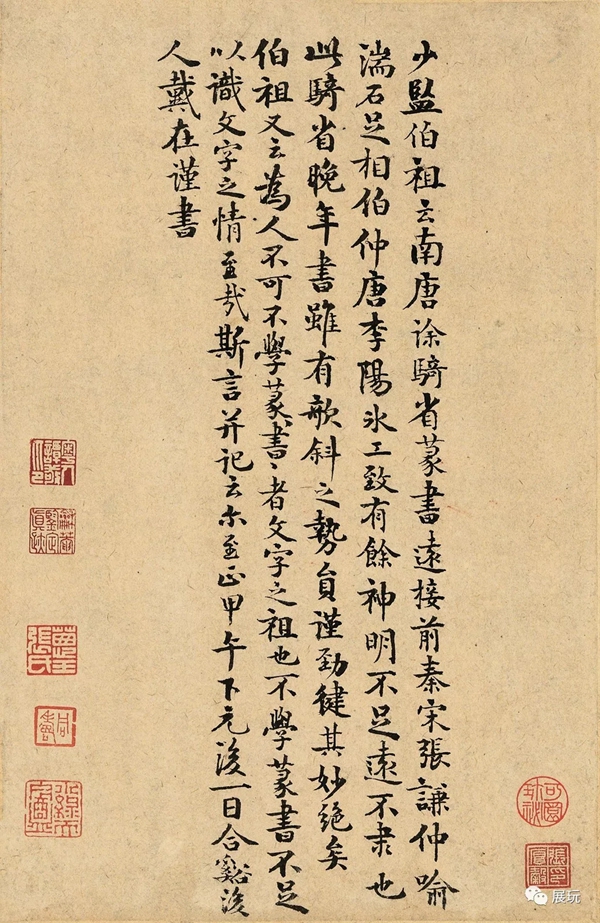 少監伯祖云南唐徐騎省篆書遠接前秦宋張謙仲喻
湍石足相伯仲唐李陽冰工致有餘神明不足遠不隶也
此騎省晚年書雖有欹斜之勢員謹勁健其妙絕矣
伯祖又云為人不可不學篆書〻者文字之祖也不學篆書不足
以識文字之情至哉斯言并記云尒至正甲午下元後一日合谿後
人戴在謹書
展玩